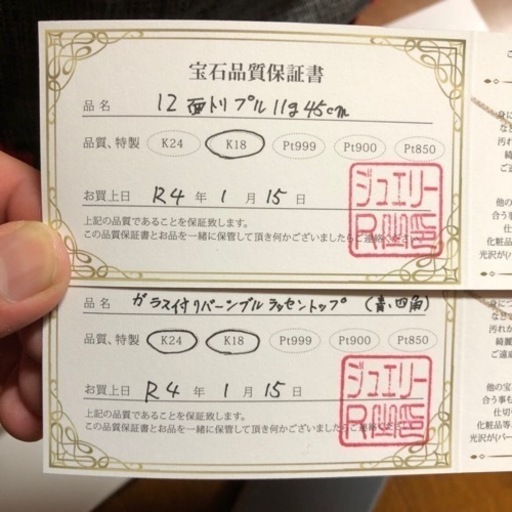 宝石品質保証書
品名 12面トリプル11g45cm
品質、特製 K24 K18 Pt999 Pt900 Pt850
お買上日 R4年1月15日
上記の品質であることを保証致します。
この品質保証書とお品を一緒に保管して頂き何かございましたらご連絡ください
ジュエリー
品名 ガラス付リバーシブルラッセントップ(青・四角)
品質、特製 K24 K18 Pt999 Pt900 Pt850
お買上日 R4年1月15日
上記の品質であることを保証致します。
この品質保証書とお品を一緒に保管して頂き何かございましたらご連絡ください
ジュエリー